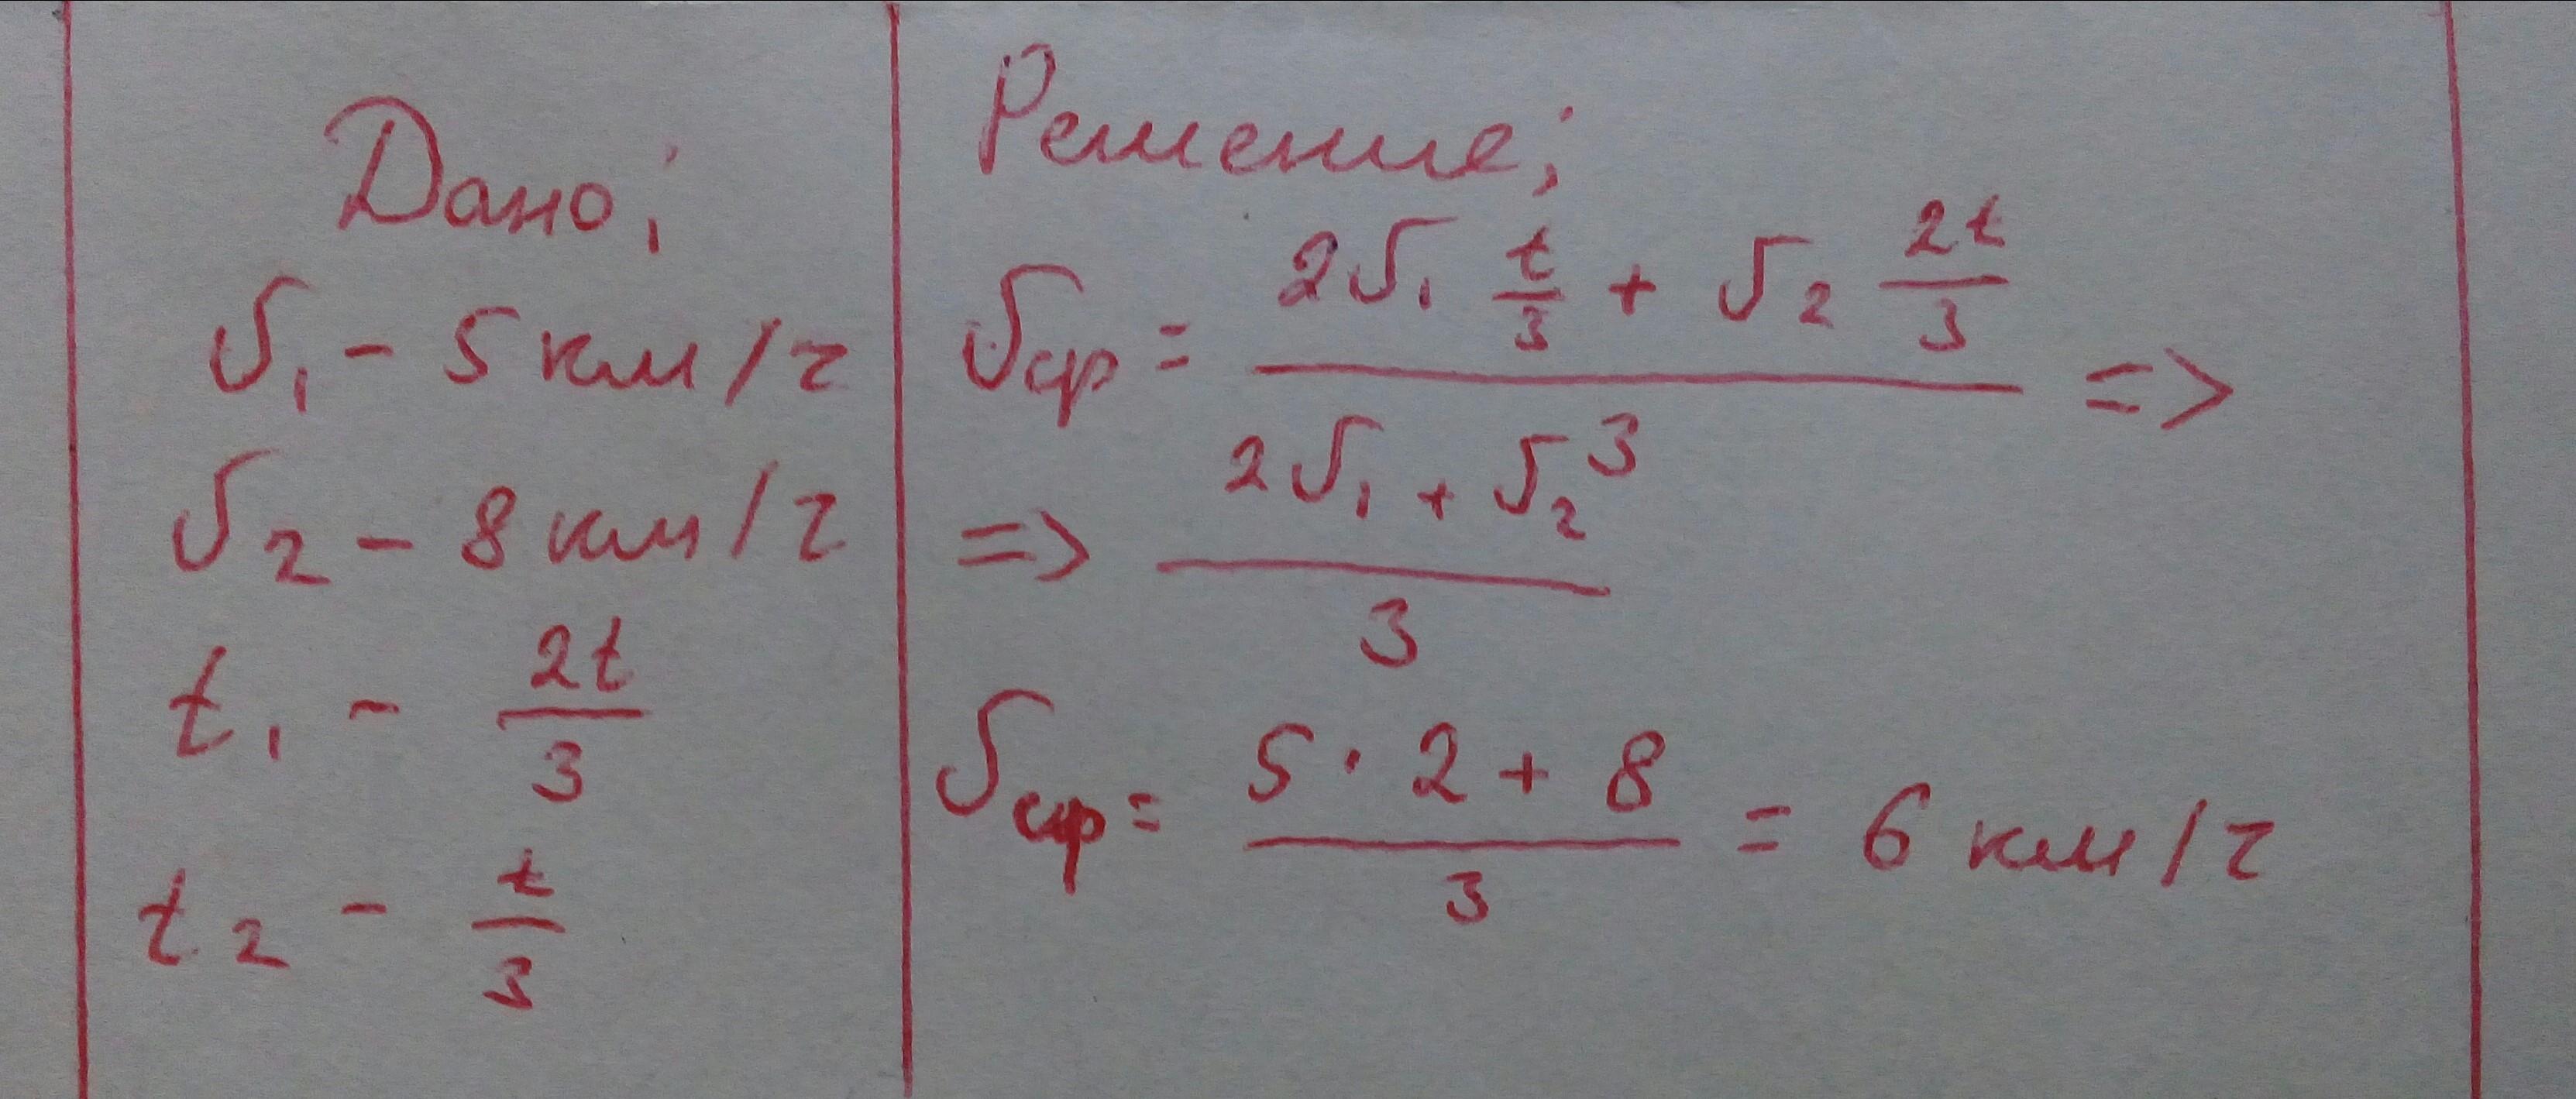 Дано:
v₁ - 5 км/ч
v₂ - 8 км/ч
t₁ - 2t/3
t₂ - t/3
Решение:
vср = (2v₁ t/3 + v₂ 2t/3) / (2v₁ + v₂³) =>
=> / 3
vср = (5 · 2 + 8) / 3 = 6 км/ч